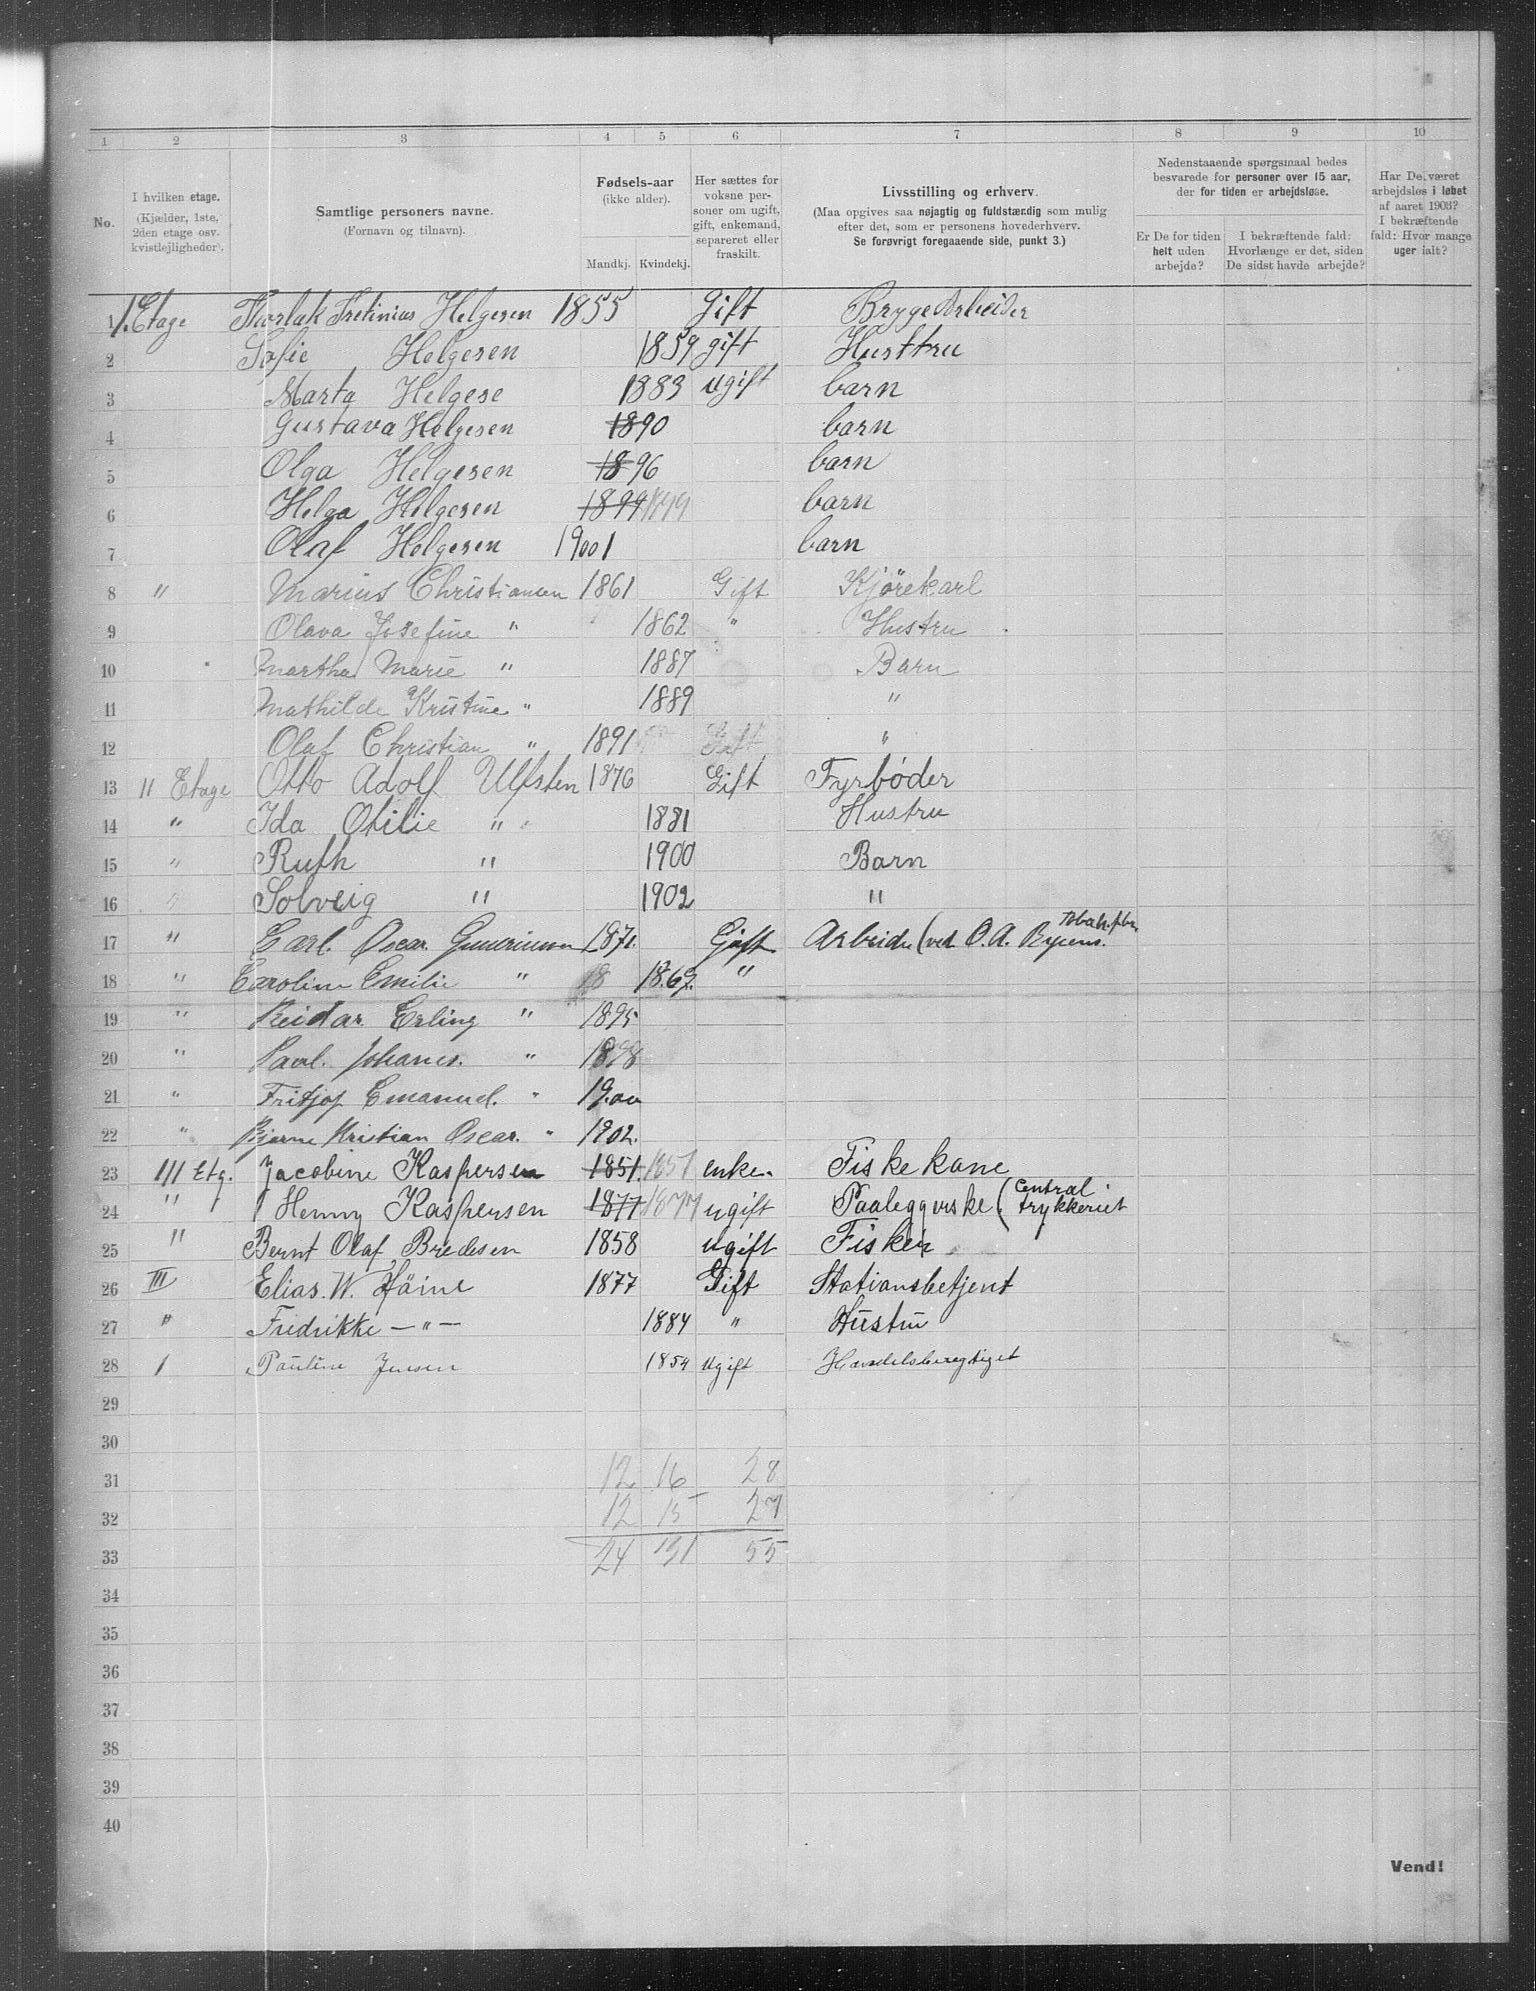 1 2 3 4 5 6 7 8 9 10
No.
I hvilken etage.
(Kjælder, 1ste,
2den etage osv.
kvistlejligheder).
Samtlige personers navne.
(Fornavn og tilnavn).
Fødsels-aar
(ikke alder).
Mandkj. Kvindekj.
Her sættes for
voksne per-
soner om ugift,
gift, enkemand,
separeret eller
fraskilt.
Livsstilling og erhverv.
(Maa opgives saa nøjagtig og fuldstændig som mulig
efter det, som er personens hovederhverv.
Se forøvrigt foregaaende side, punkt 3.)
Nedenstaaende spørgsmaal bedes
besvarede for personer over 15 aar,
der for tiden er arbejdsløse.
Er De for tiden
helt uden
arbejde?
I bekræftende fald:
Hvorlænge er det, siden
De sidst havde arbejde?
Har De været
arbejdsløs i løbet
af aaret 1903?
I bekræftende
fald: Hvor mange
uger ialt?
1 1. Etage Helgesen 1855 Gift BrygeArbeider
2 Sofie Helgesen 1859 gift Husttru
3 Marta Helgese 1883 ugift barn
4 Gustava Helgesen 1890 barn
5 Olga Helgesen 1896 barn
6 Helga Helgesen 1899 1899 barn
7 Olaf Helgesen 1900 1 barn
8 " Marius Christiansen 1861 Gift Kjörekarl
9 Olava Josefine " 1862 " Hustru
10 Martha Marie " 1887 Barn
11 Mathilde Kristine " 1889 "
12 Olaf Christian " 1891 Gift "
13 11 Etage Otto Adolf Ulfsten 1876 Gift Fyrbøder
14 " Ida Otilie " 1881 Hustru
15 " Ruth " 1900 Barn
16 " Solveig " 1902 "
17 " Carl. Oscar 1871. Gift Arbeider (ved O. A.
18 " Caroline Emilie " 18 1867. "
19 " Reidar Erling " 1895
20 " Paul. Johanes. " 1898
21 " Fritjof Emanuel. " 19.00
22 " Bjarne Kristian Oscar. " 1902.
23 111 Etg. Jacobine Kaspersen 1851. 1851 enke. Fiskekone
24 " Henny Kaspersen 1877 1877 ugift Paaleggerske (Central-
trykkeriet
25 " Bernt Olaf Bredesen 1858 ugift Fisker
26 III Elias. W. Höine 1877 Gift Stationsbetjent
27 " Fredrikke — " — 1884 " Hustru
28 1 Pauline Jensen 1854 Ugift Handelsberegtiget
29
30
31 12 16 28
32 12 15 27
33 24 31 55
34
35
36
37
38
39
40
Vend!